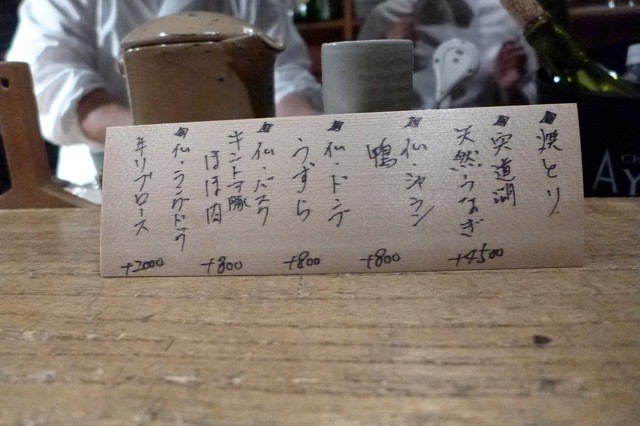 焼とり
宍道湖
天然うなぎ
+4500
仏・シャラン
鴨
+800
仏・ドンブ
うずら
+800
仏・バスク
キントア豚
ほほ肉
+800
仏・ラングドック
牛リブロース
+2000
AY